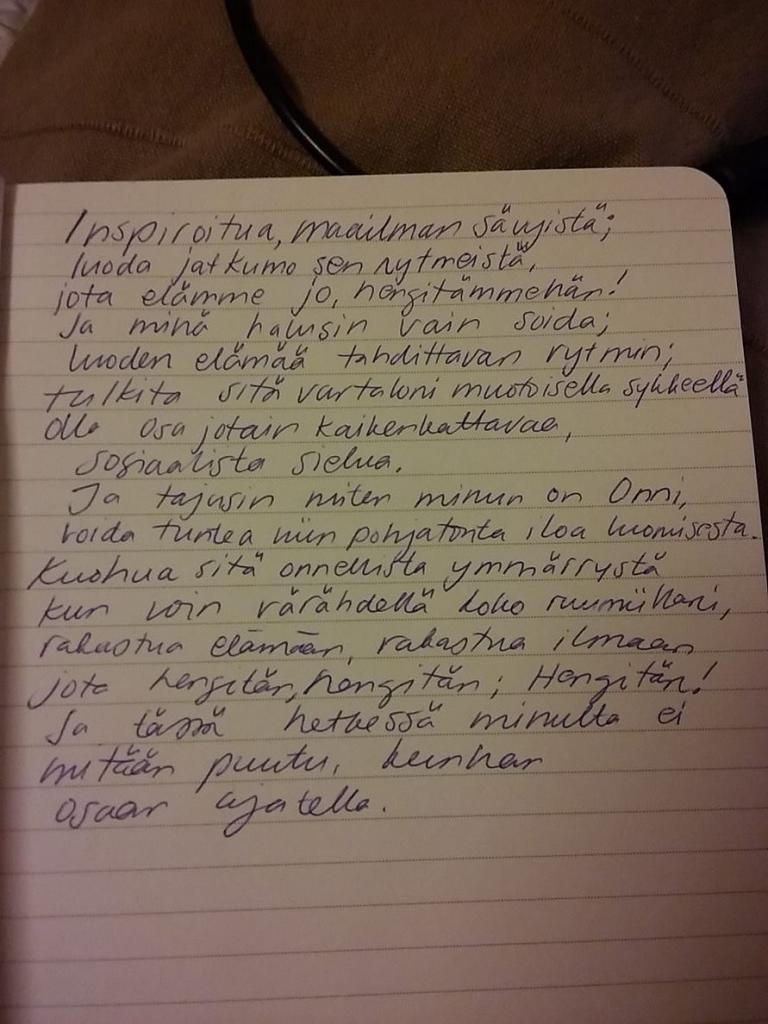 Inspiroitua, maailman sävyistä;
luoda jatkumo sen rytmeistä,
jota elämme jo, hengitämmehän!
Ja minä halusin vain soida;
luoden elämää tahdittavan rytmin;
tulkita sitä vartaloni muotoisella sykkeellä
olla osa jotain kaikenkattavaa,
sosiaalista sielua.
Ja tajusin miten minun on Onni,
voida tuntea niin pohjatonta iloa luomisesta.
Kuohua sitä onnellista ymmärrystä
kun voin värähdellä koko ruumiillani,
rakastua elämään, rakastua ilmaan
jota hengitän, hengitän; Hengitän!
Ja tässä hetkessä minulta ei
mitään puutu, kunhan
osaan ajatella.